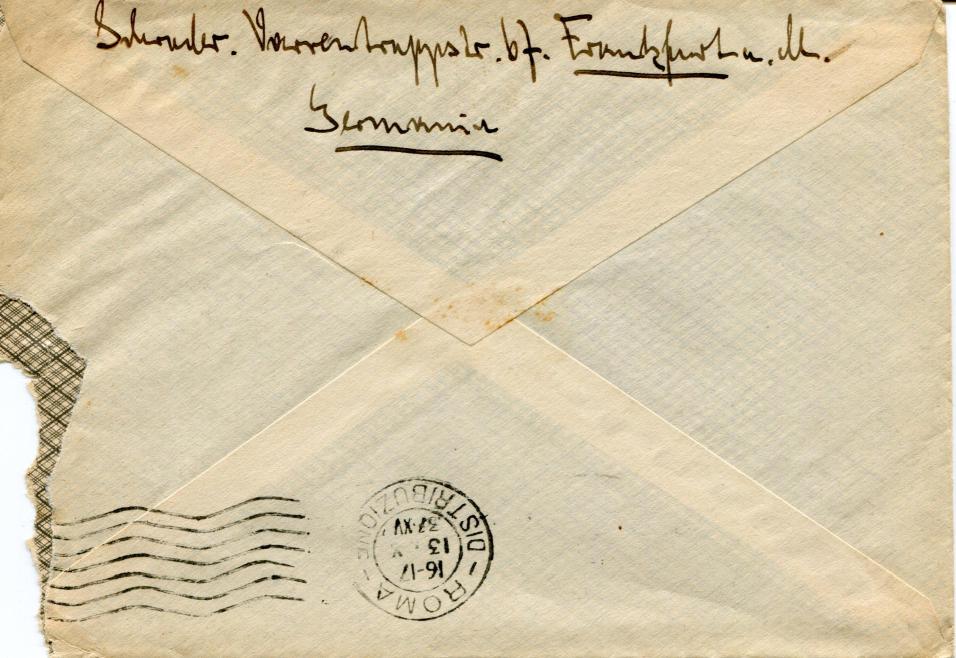 Schroeder. Varrentrappstr. 67. Frankfurt a. M.
Germania
ROMA - DISTRIBUZIONE -
16-17
13 · V
37·XV